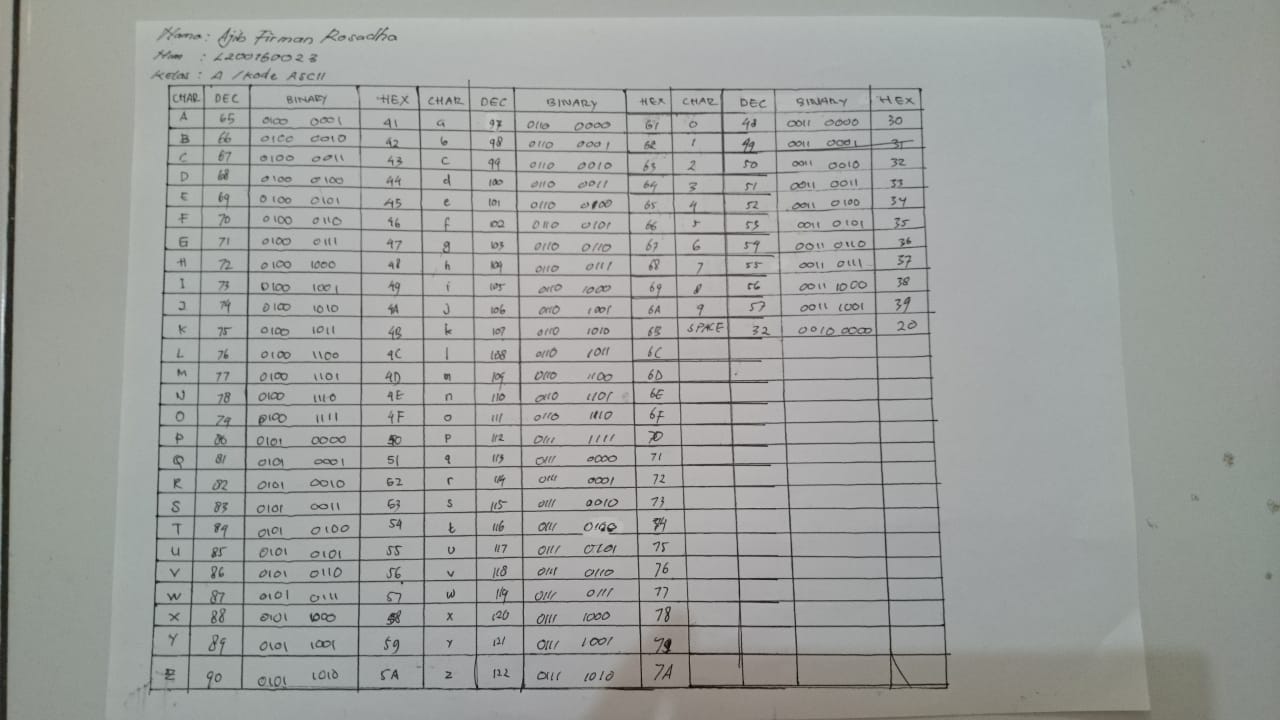 Nama : Ajib Firman Rosadha
Nim : L200160023
Kelas : A / Kode ASCII
CHAR DEC BINARY HEX CHAR DEC BINARY HEX CHAR DEC BINARY HEX
A 65 0100 0001 41 a 97 0110 0000 61 0 48 0011 0000 30
B 66 0100 0010 42 b 98 0110 0001 62 1 49 0011 0001 31
C 67 0100 0011 43 c 99 0110 0010 63 2 50 0011 0010 32
D 68 0100 0100 44 d 100 0110 0011 64 3 51 0011 0011 33
E 69 0100 0101 45 e 101 0110 0100 65 4 52 0011 0100 34
F 70 0100 0110 46 f 102 0110 0101 66 5 53 0011 0101 35
G 71 0100 0111 47 g 103 0110 0110 67 6 54 0011 0110 36
H 72 0100 1000 48 h 104 0110 0111 68 7 55 0011 0111 37
I 73 0100 1001 49 i 105 0110 1000 69 8 56 0011 1000 38
J 74 0100 1010 4A J 106 0110 1001 6A 9 57 0011 1001 39
K 75 0100 1011 4B k 107 0110 1010 6B SPACE 32 0010 0000 20
L 76 0100 1100 4C l 108 0110 1011 6C
M 77 0100 1101 4D m 109 0110 1100 6D
N 78 0100 1110 4E n 110 0110 1101 6E
O 79 0100 1111 4F o 111 0110 1110 6F
P 80 0101 0000 50 p 112 0111 1111 70
Q 81 0101 0001 51 q 113 0111 0000 71
R 82 0101 0010 52 r 114 0111 0001 72
S 83 0101 0011 53 s 115 0111 0010 73
T 84 0101 0100 54 t 116 0111 74
U 85 0101 0101 55 u 117 0111 0101 75
V 86 0101 0110 56 v 118 0111 0110 76
W 87 0101 0111 57 w 119 0111 0111 77
X 88 0101 1000 58 x 120 0111 1000 78
Y 89 0101 1001 59 Y 121 0111 1001 79
Z 90 0101 1010 5A z 122 0111 1010 7A